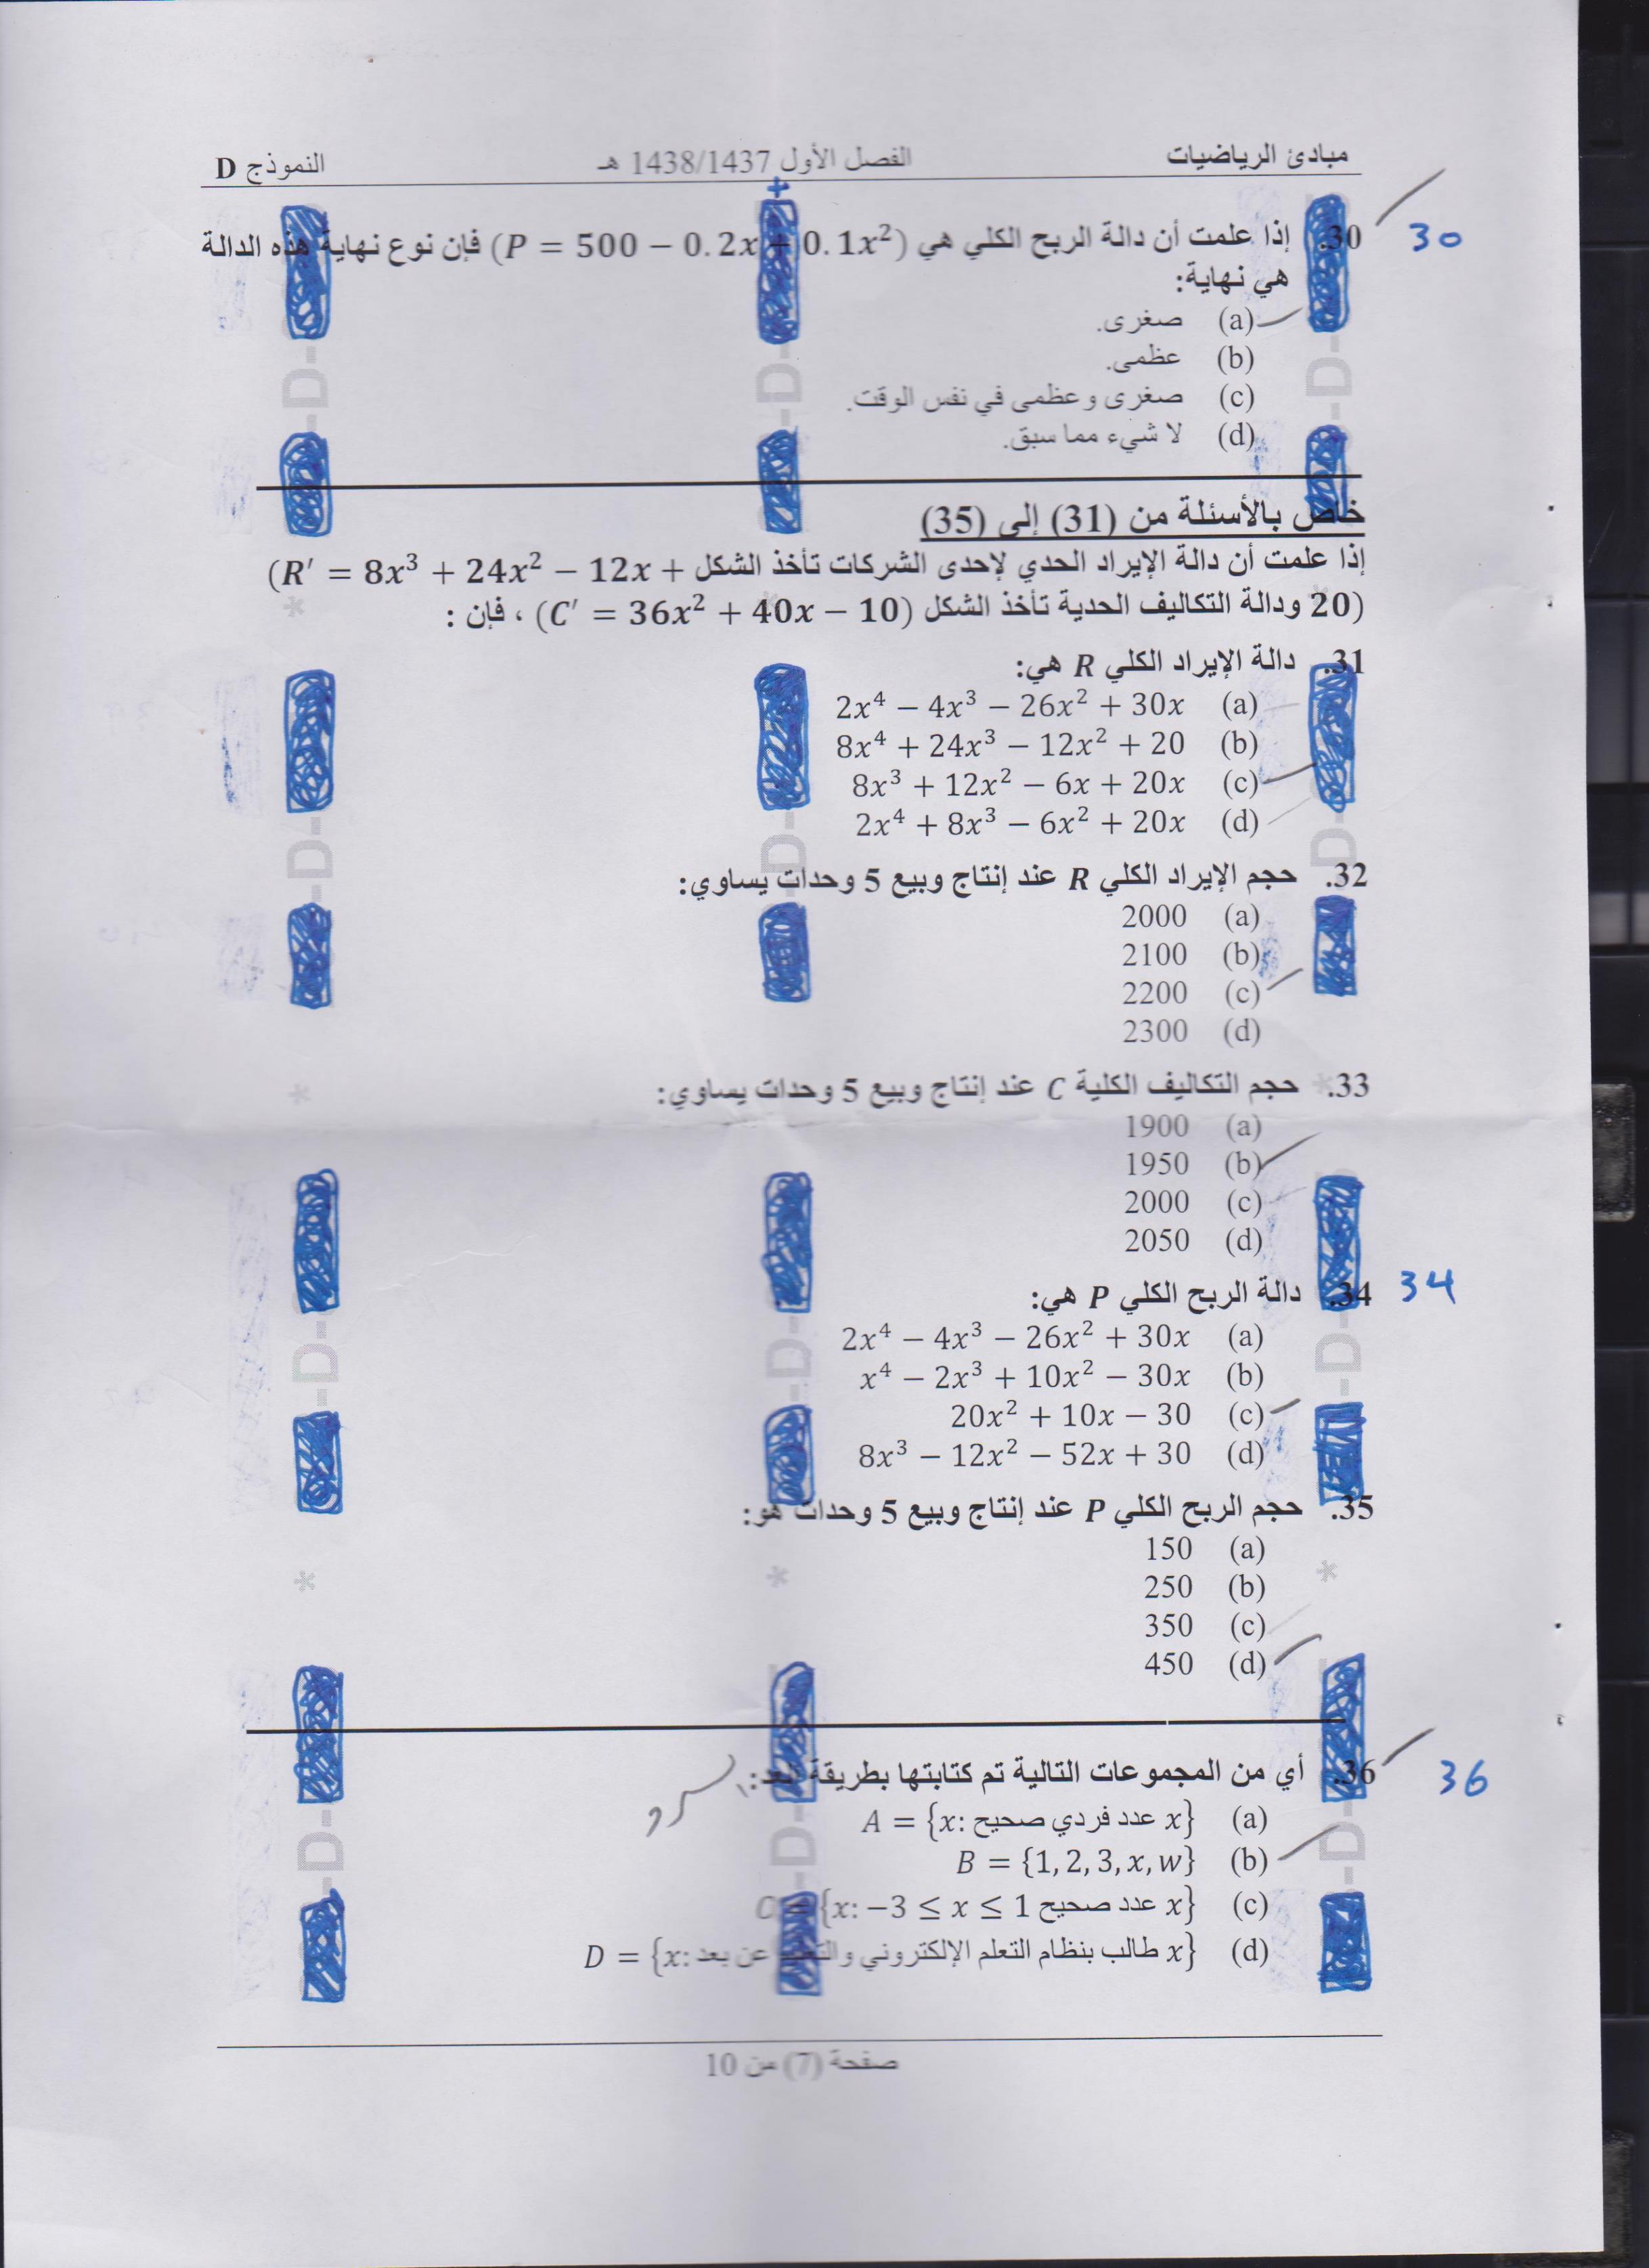 مبادئ الرياضيات الفصل الأول 1438/1437 هـ النموذج D
+
30. إذا علمت أن دالة الربح الكلي هي (P = 500 − 0.2x + 0.1x²) فإن نوع نهاية هذه الدالة 30
هي نهاية:
(a) صغرى.
(b) عظمى.
(c) صغرى وعظمى في نفس الوقت.
(d) لا شيء مما سبق.
خاص بالأسئلة من (31) إلى (35)
إذا علمت أن دالة الإيراد الحدي لإحدى الشركات تأخذ الشكل (R′ = 8x³ + 24x² − 12x +
20) ودالة التكاليف الحدية تأخذ الشكل (C′ = 36x² + 40x − 10) ، فإن :
31. دالة الإيراد الكلي R هي:
(a) 2x⁴ − 4x³ − 26x² + 30x
(b) 8x⁴ + 24x³ − 12x² + 20
(c) 8x³ + 12x² − 6x + 20x
(d) 2x⁴ + 8x³ − 6x² + 20x
32. حجم الإيراد الكلي R عند إنتاج وبيع 5 وحدات يساوي:
(a) 2000
(b) 2100
(c) 2200
(d) 2300
33. حجم التكاليف الكلية C عند إنتاج وبيع 5 وحدات يساوي:
(a) 1900
(b) 1950
(c) 2000
(d) 2050
34. دالة الربح الكلي P هي: 34
(a) 2x⁴ − 4x³ − 26x² + 30x
(b) x⁴ − 2x³ + 10x² − 30x
(c) 20x² + 10x − 30
(d) 8x³ − 12x² − 52x + 30
35. حجم الربح الكلي P عند إنتاج وبيع 5 وحدات هو:
(a) 150
(b) 250
(c) 350
(d) 450
36. أي من المجموعات التالية تم كتابتها بطريقة : 36
(a) A = {x: عدد فردي صحيح x}
(b) B = {1, 2, 3, x, w}
(c) C = {x: −3 ≤ x ≤ 1 عدد صحيح x}
(d) D = {x: طالب بنظام التعلم الإلكتروني والتعليم عن بعد x}
صفحة (7) من 10